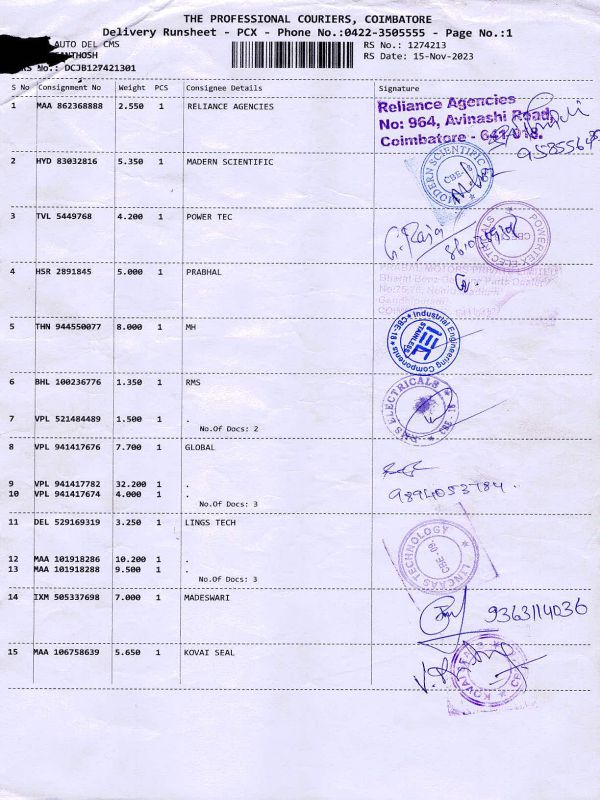 THE PROFESSIONAL COURIERS, COIMBATORE
Delivery Runsheet - PCX - Phone No.:0422-3505555 - Page No.:1
AUTO DEL CMS
RS No.: 1274213
RS Date: 15-Nov-2023
RS No.: DCJB127421301
S No Consignment No Weight PCS Consignee Details Signature
1 MAA 862368888 2.550 1 RELIANCE AGENCIES
Reliance Agencies
No: 964, Avinashi Road,
Coimbatore - 641 018.
2 HYD 83032816 5.350 1 MADERN SCIENTIFIC
MODERN SCIENTIFIC
CBE-18
3 TVL 5449768 4.200 1 POWER TEC
G. Raja
POWERTEX ELECTRICALS
4 HSR 2891845 5.000 1 PRABHAL
PRABAL MOTORS PRIVATE LIMITED
5 THN 944550077 8.000 1 MH
Industrial Engineering Components CBE-18
STAINLESS
6 BHL 100236776 1.350 1 RMS
RMS ELECTRICALS
7 VPL 521484489 1.500 1 .
No.Of Docs: 2
8 VPL 941417676 7.700 1 GLOBAL
9 VPL 941417782 32.200 1 .
10 VPL 941417674 4.000 1 .
9894053784
No.Of Docs: 3
11 DEL 529169319 3.250 1 LINGS TECH
LINCAAS TECHNOLOGY
CBE-09
12 MAA 101918286 10.200 1 .
13 MAA 101918288 9.500 1 .
No.Of Docs: 3
14 IXM 505337698 7.000 1 MADESWARI
9363114036
15 MAA 106758639 5.650 1 KOVAI SEAL
KOVAI